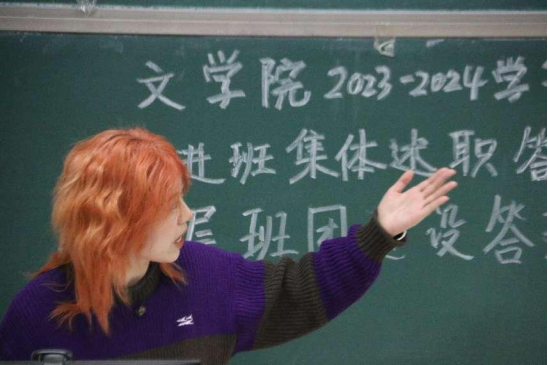 文学院2023-2024学
进班集体述职答
层班团 设答